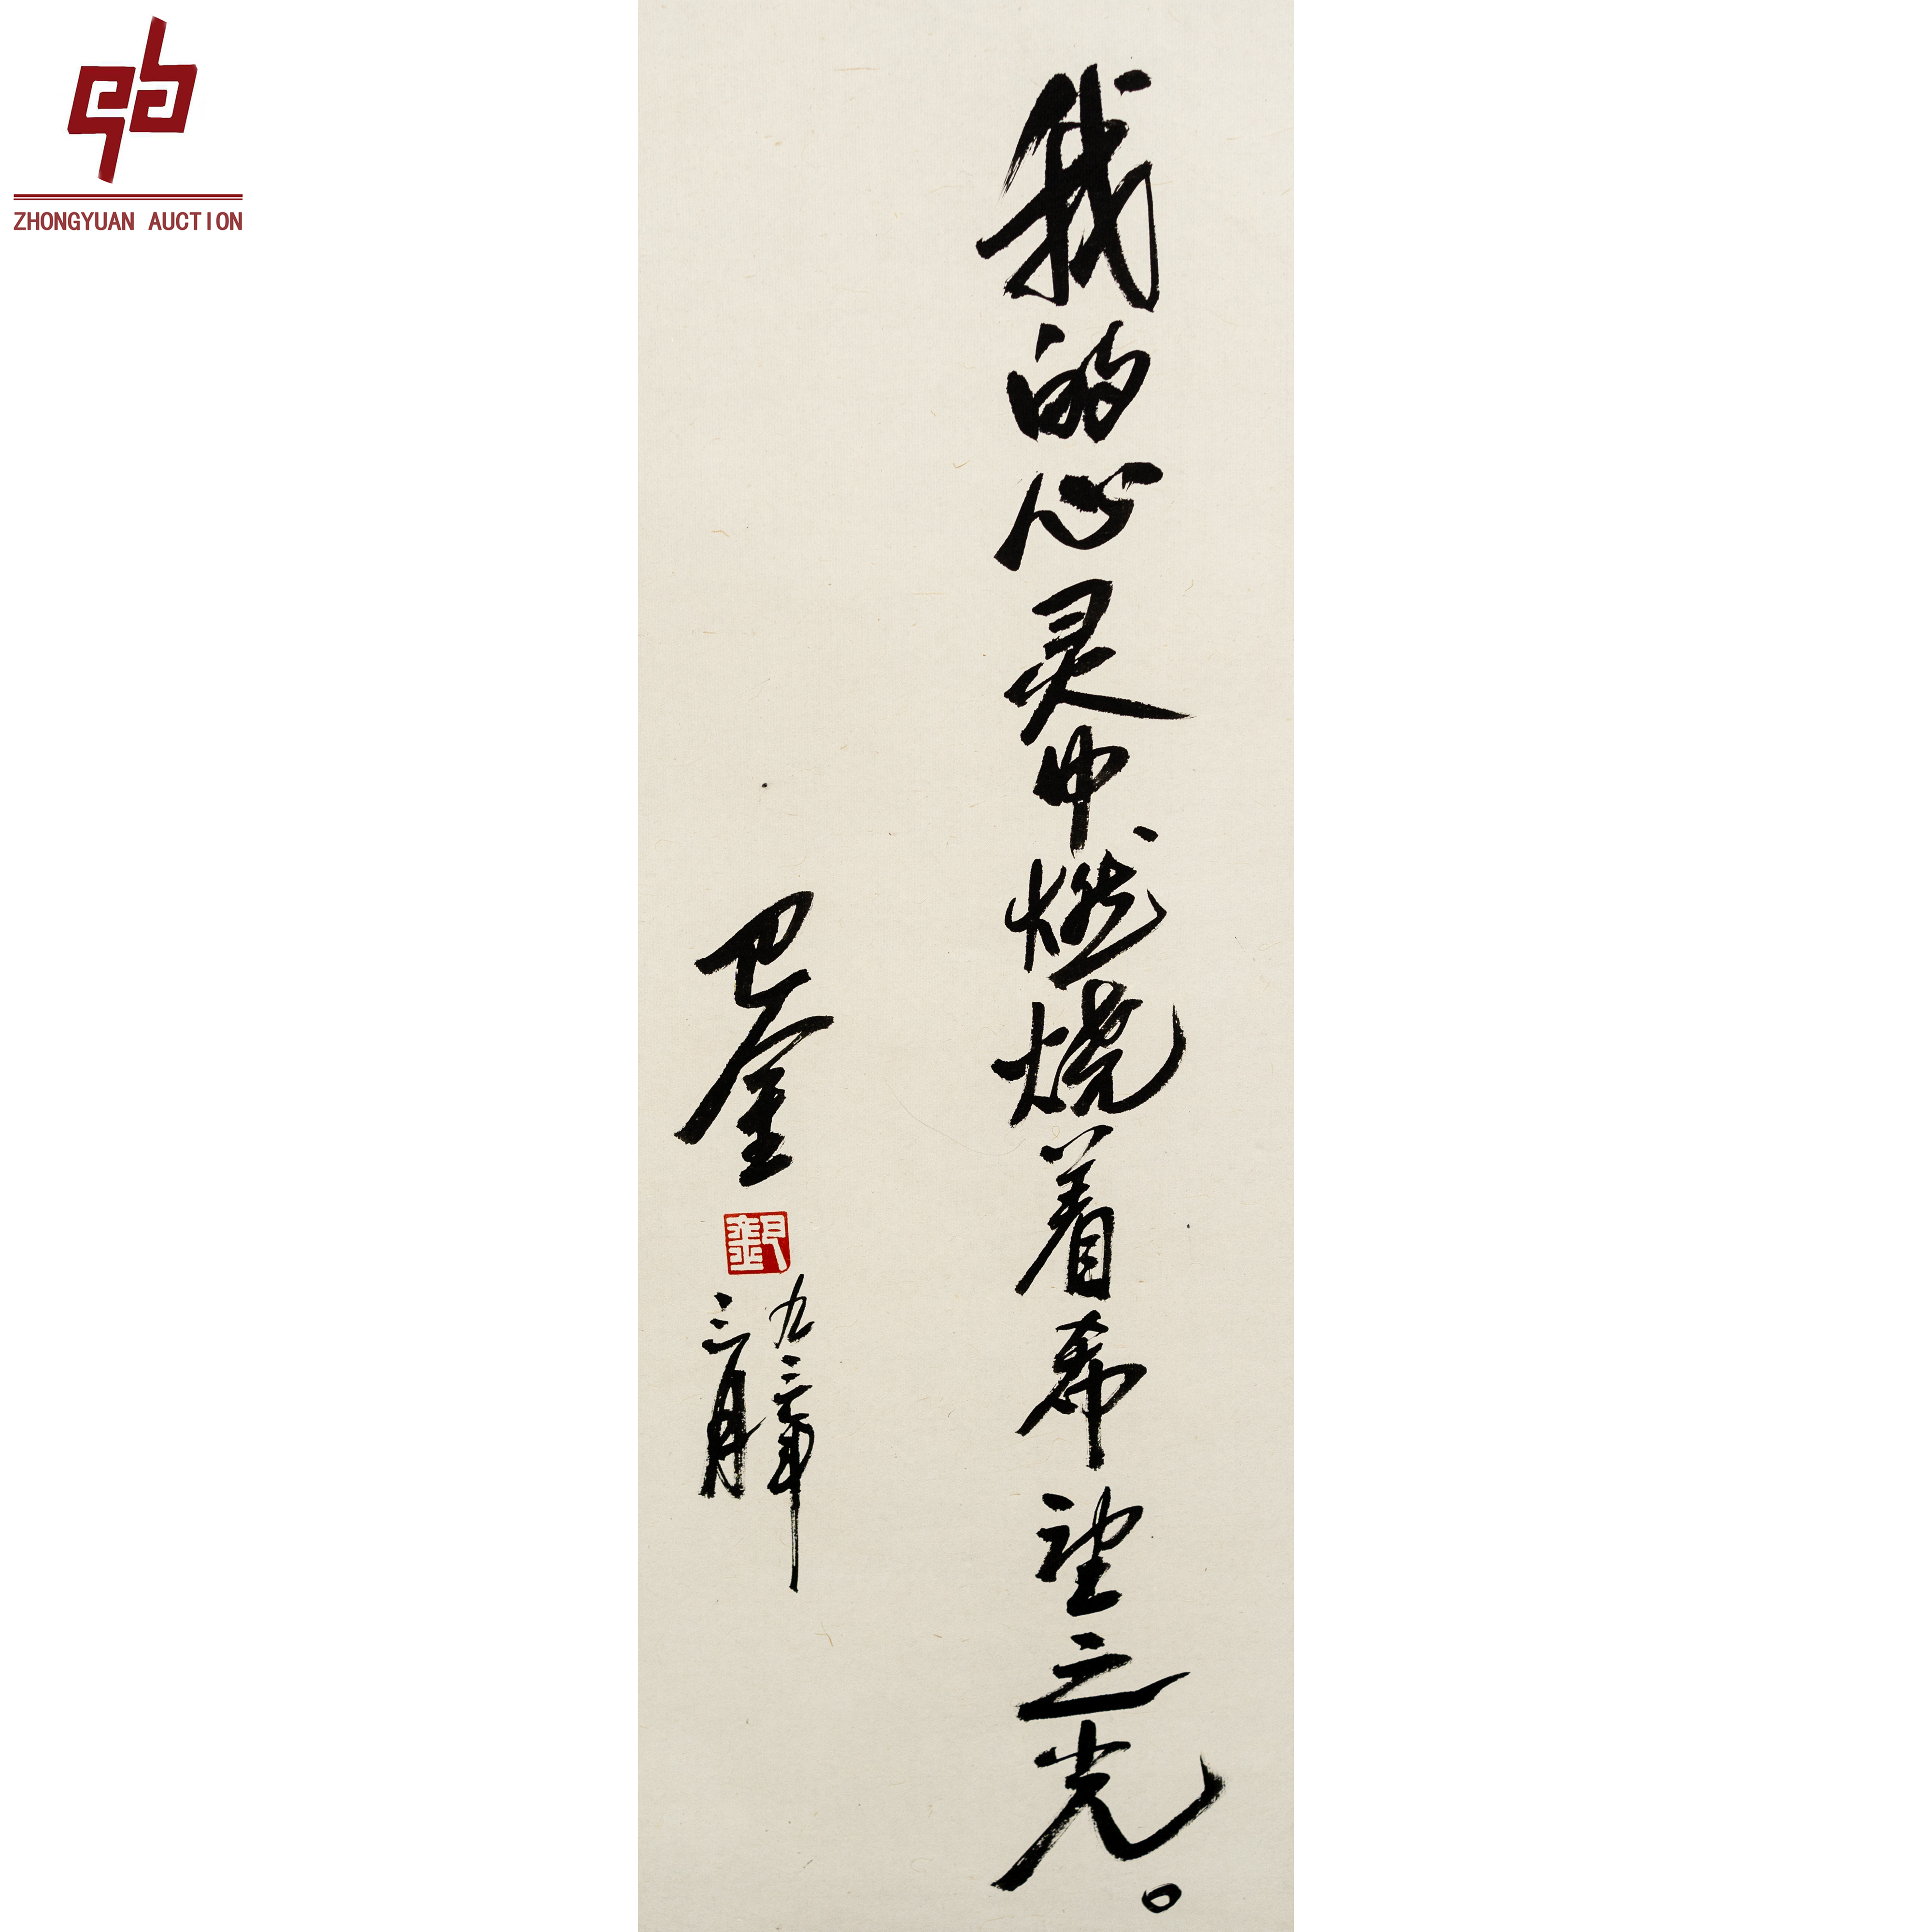 ZHONGYUAN AUCTION
我的心灵中燃烧着希望之光。
巴金
巴金
九三年
三月